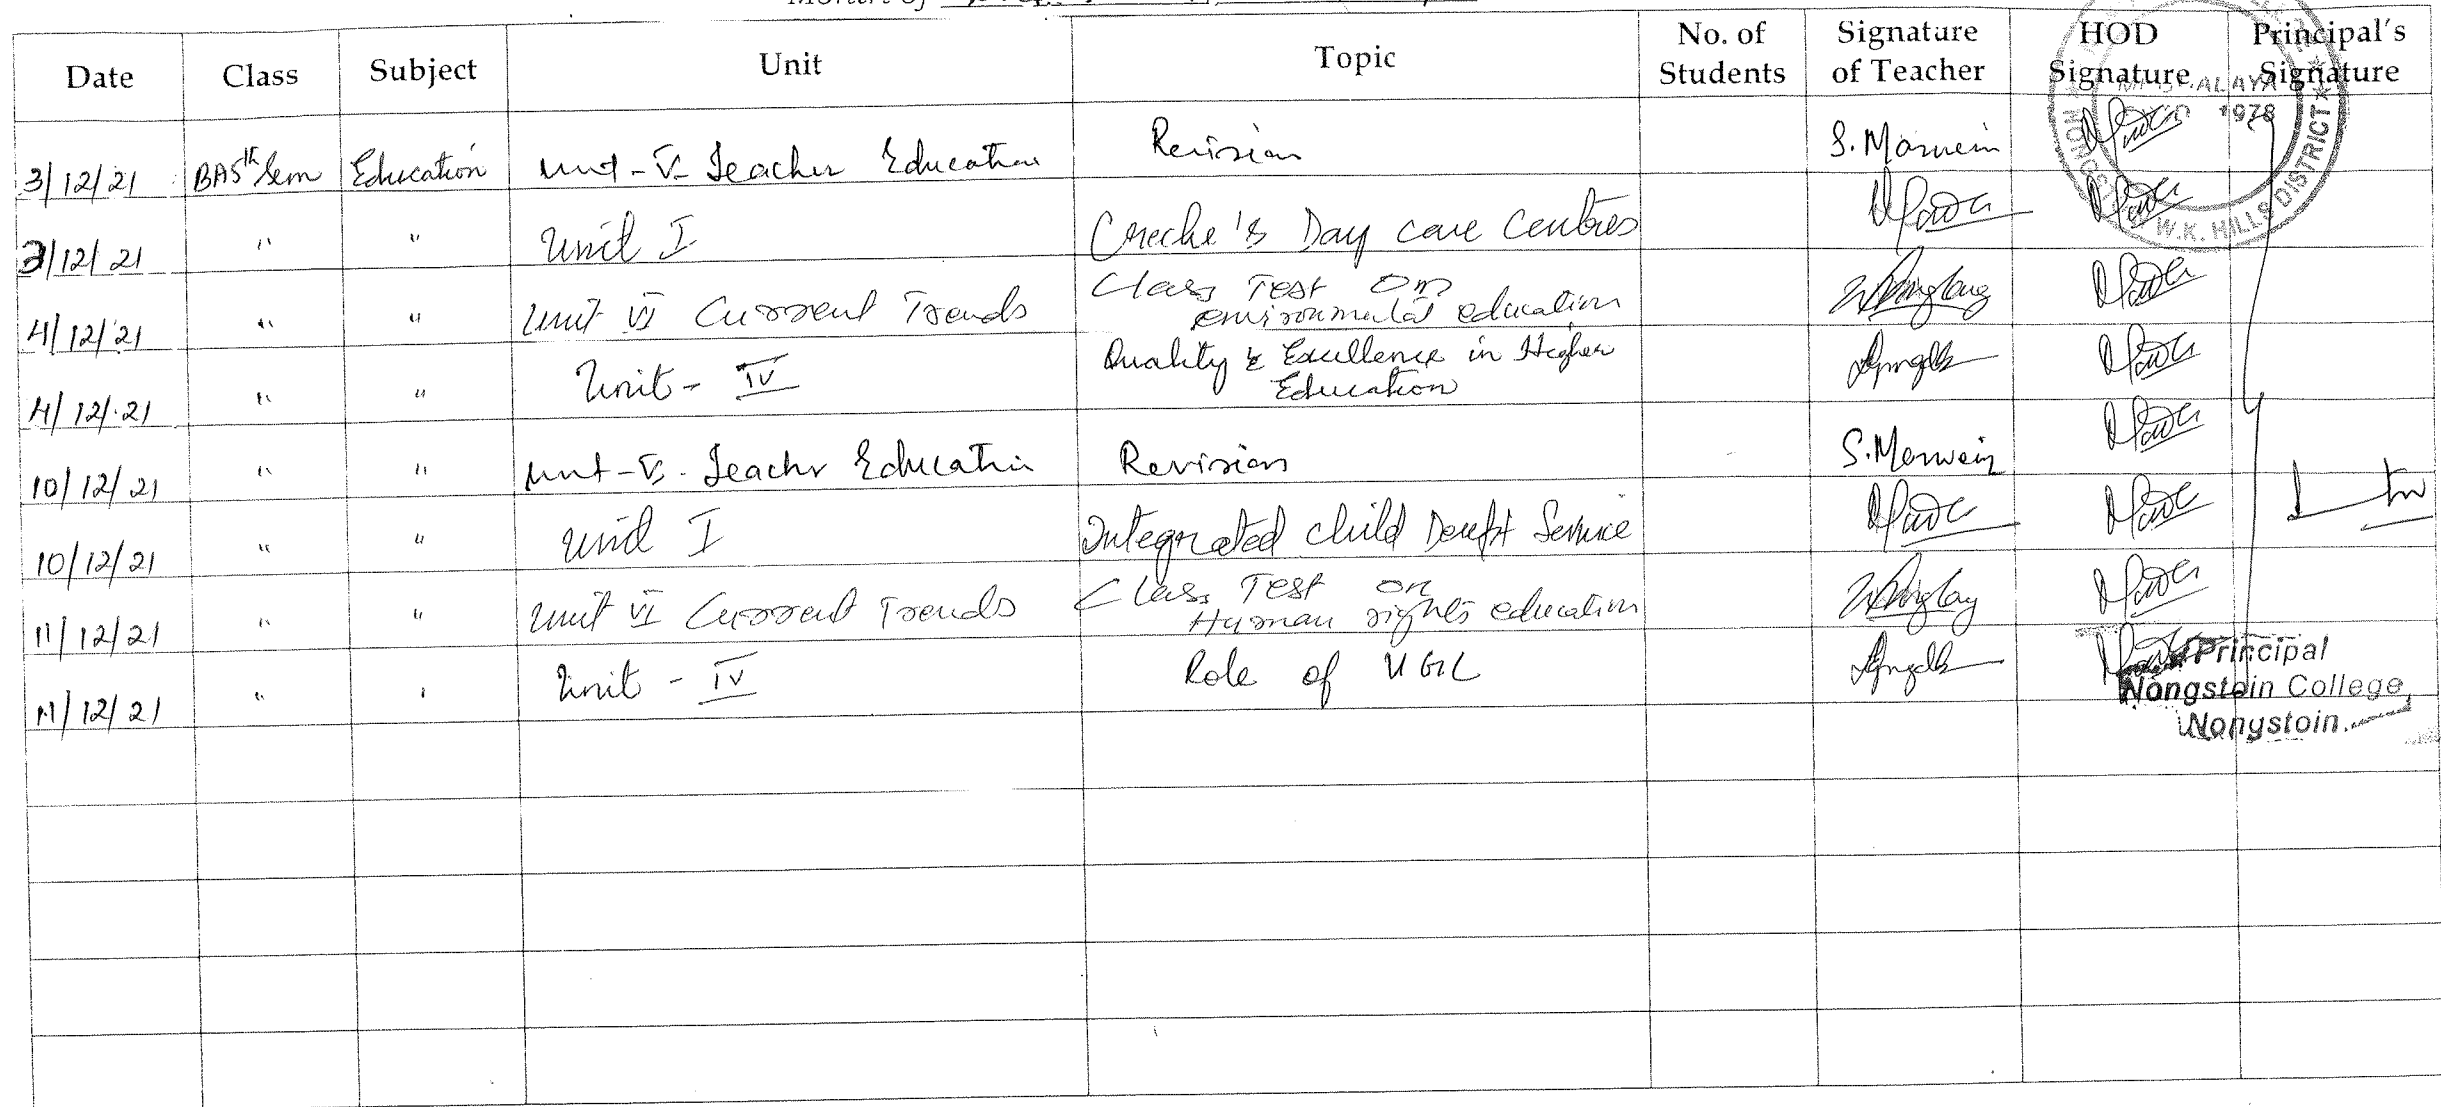 Month of
Date Class Subject Unit Topic No. of Students Signature of Teacher HOD Signature Principal's Signature
3/12/21 BA5th Sem Education Unit - V - Teacher Education Revision S. Marwein
3/12/21 " " Unit I Creche's Day care Centres
4/12/21 " " Unit VI Current Trends Class Test On environmental education
4/12/21 " " Unit - IV Quality & Excellence in Higher Education
10/12/21 " " Unit - V - Teacher Education Revision S. Marwein
10/12/21 " " Unit I Integrated Child Devept Service
11/12/21 " " Unit VI Current Trends Class Test on Human rights education
11/12/21 " " Unit - IV Role of UGC
MEGHALAYA
1978
W.K. HILLS DISTRICT
Principal
Nongstoin College,
Nongstoin.